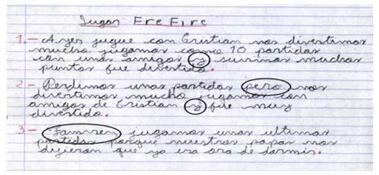 Jugar FreFire
1.- Ayer jugue con Cristian nos divertimos
mucho jugamos como 10 partidas
con unos amigos y suvimos muchos
puntos fue divertido.
2- Perdimos unas partidas pero nos
divertimos mucho jugamos con
amigos de Cristian y fue muy
divertido.
3- Tamvien jugamos unas ultimas
partidas porque nuestros papas nos
dijeron que ya era ora de dormir.